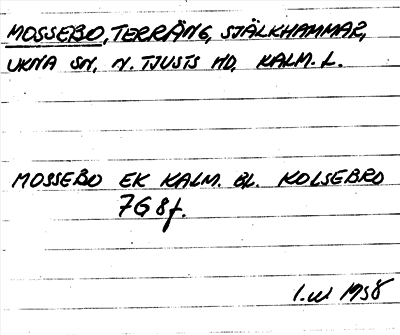 MOSSEBO, TERRÄNG, STJÄLKHAMMAR,
UKNA SN, N. TJUSTS HD, KALM. L.
MOSSEBO EK KALM. BL. KOLSEBRO
7G 8f.
1. 1958